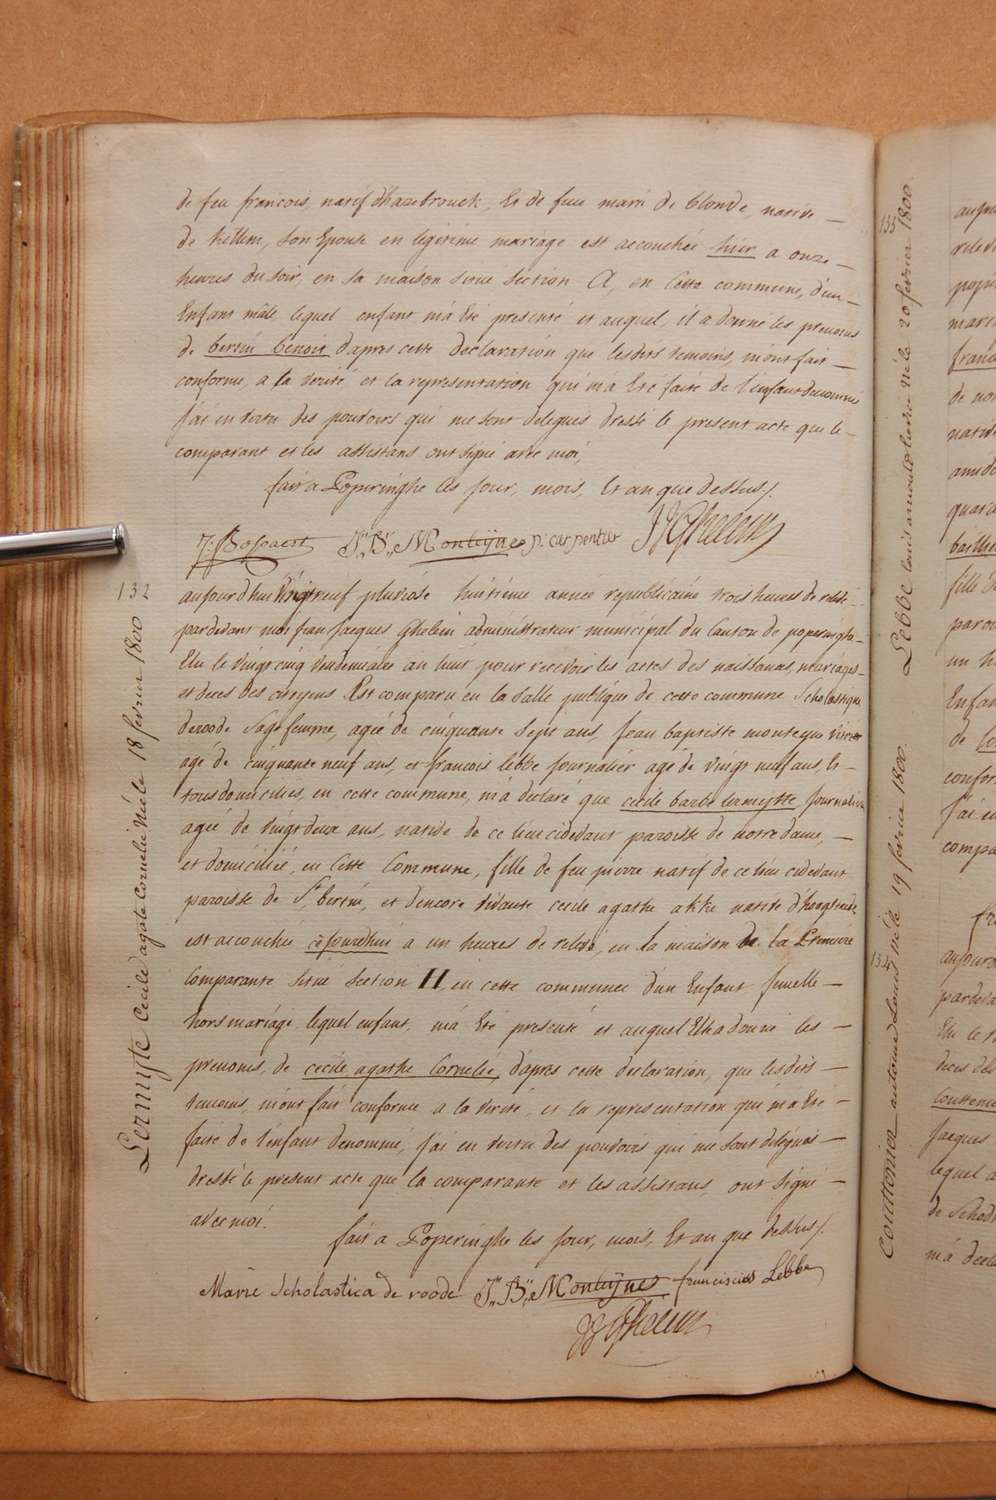 de feu francois, natif d'hazebrouck, Et de feue marie de blonde, native —
de killem, son Epouse en legitime mariage est accouchée hier a onze —
heures du soir, en sa maison sise section A, en cette commune, d'un —
Enfant mâle lequel enfant m'a Eté presenté et auquel, il a donné les prenoms
de bertin benoit d'apres cette declaration que lesdits temoins, m'ont fait —
conforme, a la verité, et la representation qui m'a Eté faite de l'enfant denommé
j'ai en vertu des pouvoirs qui me sont delegués dressé le present acte que le —
comparant et les assistans ont signé avec moi,
fait a Poperinghe les jour, mois, Et an que dessus /.
J: Bossaert J:n B:te Monteÿne p. carpentier J J Ghelein
132
aujourd'hui vingt neuf pluviose huitieme année republicaine trois heures de relevé
pardevant moi jean jacques Ghelein administrateur municipal du Canton de poperinghe
Elu le vingt cinq vendemiaire an huit pour recevoir les actes des naissances, mariages —
et deces des citoyens Est comparu en la salle publique de cette commune Scholastique
deroode sage femme, agée de cinquante sept ans, jean baptiste monteyne
agé de cinquante neuf ans, et francois lebbe journalier agé de vingt neuf ans, —
tous domiciliés, en cette commune, m'a declaré que cecile barbe lermytte, journaliere
agée de vingt deux ans, native de ce lieu cidevant paroisse de notre dame, —
et domiciliée, en cette Commune, fille de feu pierre natif de ce lieu cidevant
paroisse de S.t bertin, et d'encore vivante cecile agathe akke native d'hoogstade
est accouchée cejourd'hui a un heures de relevé, en la maison de la Premiere
Comparante situé section H, en cette commune d'un Enfant femelle —
hors mariage, lequel enfant, m'a Eté presenté et auquel Elle a donné les —
prenoms, de cecile agathe Cornelie, d'apres cette declaration, que lesdits —
temoins, m'ont fait conforme a la verité, et la representation qui m'a Eté —
faite de l'enfant denommé, j'ai en vertu des pouvoirs qui me sont delegués —
dressé le present acte que la comparante et les assistans, ont signé —
avec moi.
fait a Poperinghe les jour, mois, Et an que dessus /.
Marie Scholastica de roode J:n B:te Monteÿne franciscus Lebbe
J J Ghelein
Lermyte Cecile agate Cornelie Née le 18 fevrier 1800
133
Lebbe louis arnould Née le 20 fevrier 1800
Couttenier antoine Louis né le 19 fevrier 1800.